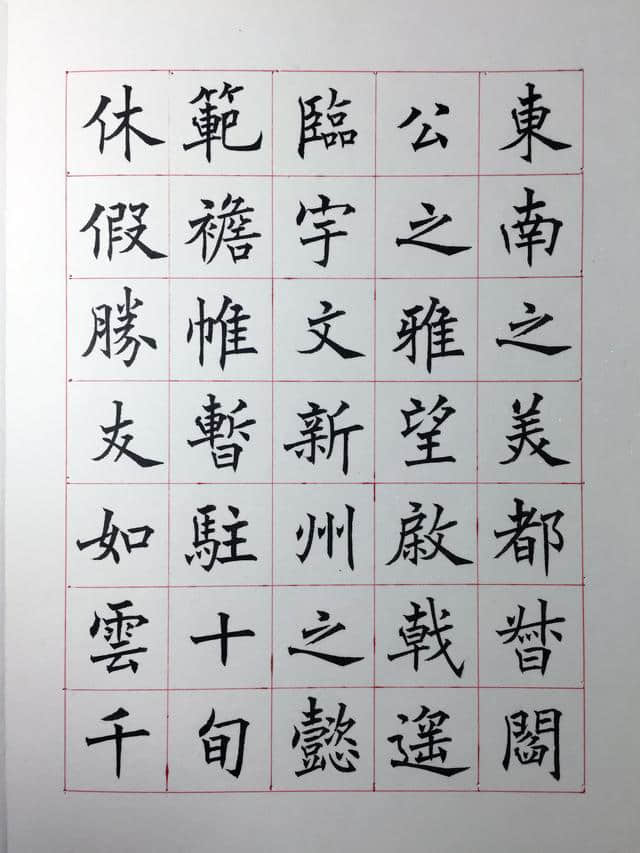 東南之美都督閻
公之雅望啟戟遙
臨宇文新州之懿
範襜帷暫駐十旬
休假勝友如雲千